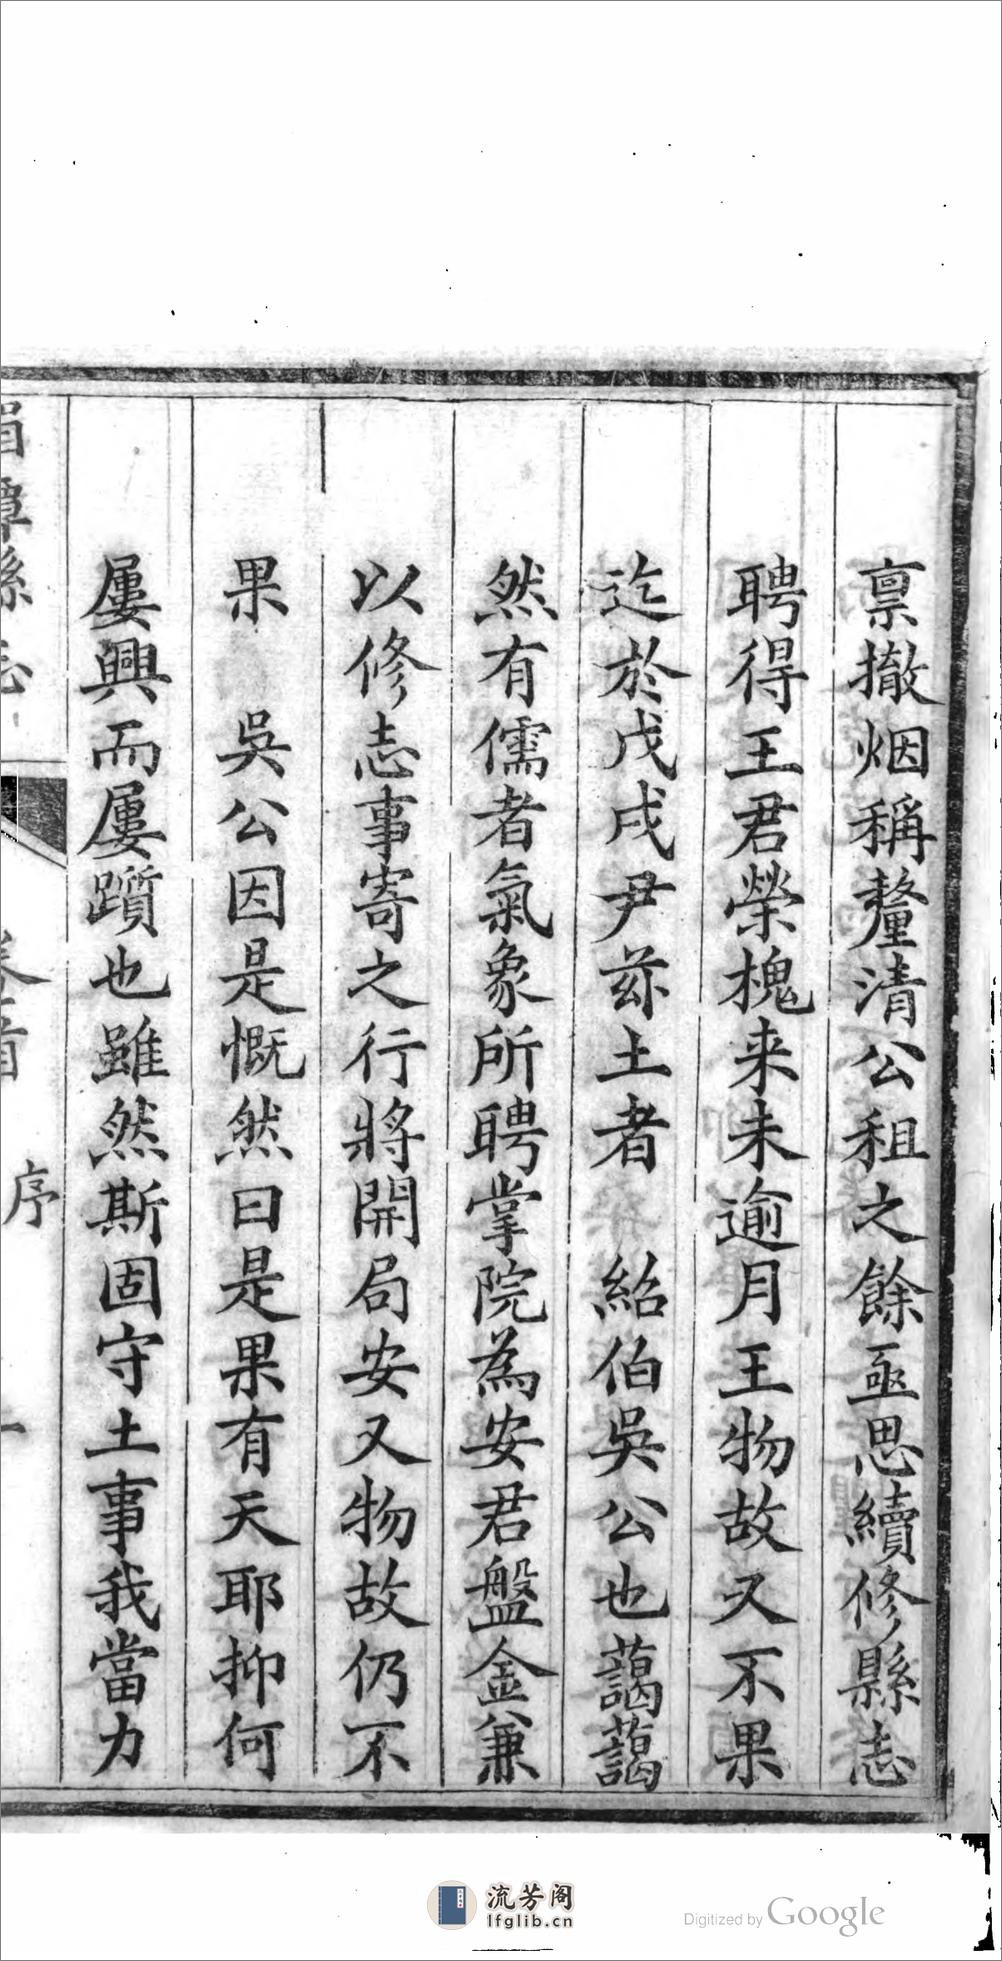 禀撤烟稱釐清公租之餘亟思續修縣志
聘得王君榮槐来未逾月王物故又不果
迄於戊戌尹茲土者 紹伯吳公也藹藹
然有儒者氣象所聘掌院為安君盤金兼
以修志事寄之行將開局安又物故仍不
果 吳公因是慨然曰是果有天耶抑何
屢興而屢躓也雖然斯固守土事我當力
湄潭縣志 卷首 序 一
流芳阁
lfglib.cn
Digitized by Google